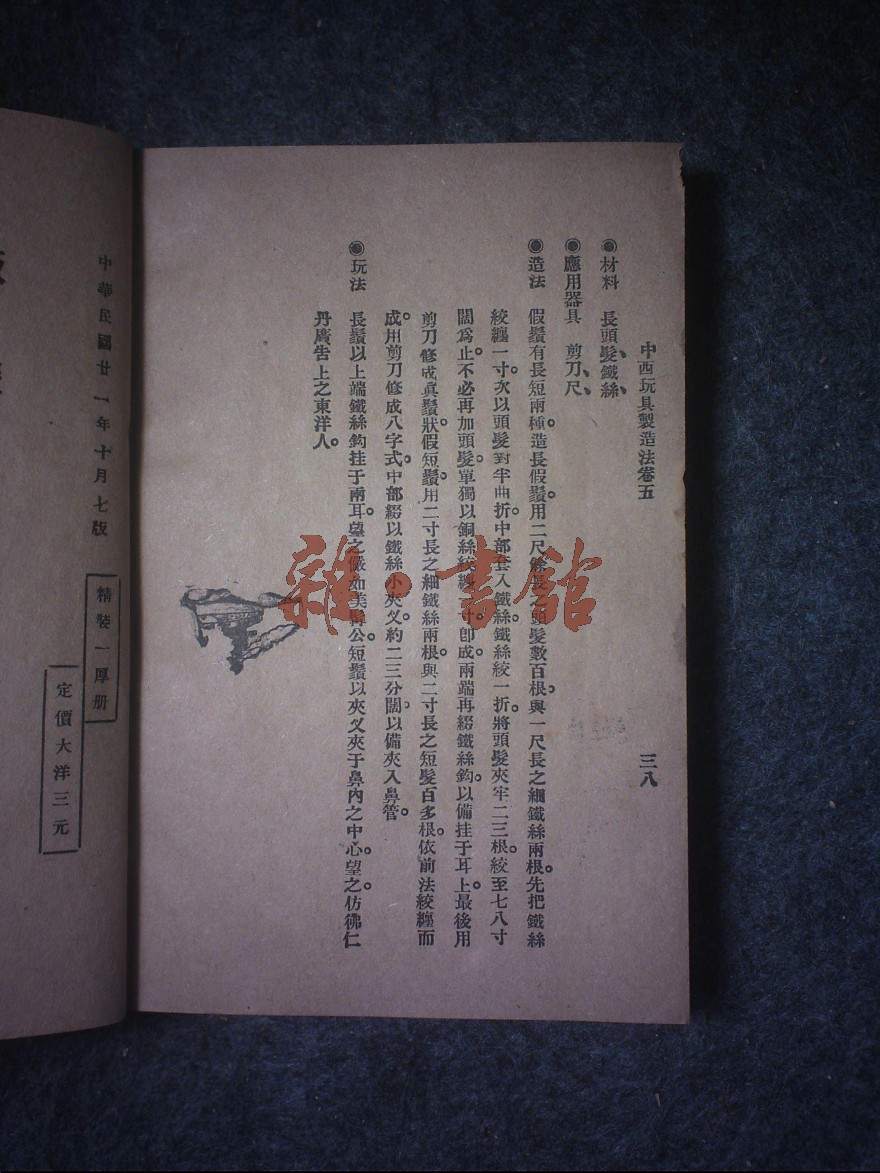 中西玩具製造法卷五
三八
◉材料　長頭髮、鐵絲、
◉應用器具　剪刀、尺、
◉造法　假鬚有長短兩種。造長假鬚。用二尺餘長之頭髮數百根。與一尺長之細鐵絲兩根。先把鐵絲
絞纏一寸。次以頭髮對半曲折。中部套入鐵絲。鐵絲絞一折。將頭髮夾牢二三根。絞至七八寸
闊爲止。不必再加頭髮。單獨以銅絲絞纏一寸。卽成。兩端再綴鐵絲鈎。以備挂于耳上。最後用
剪刀修成眞鬚狀。假短鬚。用二寸長之細鐵絲兩根。與二寸長之短髮百多根。依前法絞纏而
成。用剪刀修成八字式。中部綴以鐵絲小夾叉。約二三分闊。以備夾入鼻管。
◉玩法　長鬚以上端鐵絲鈎挂于兩耳。望之儼如美髯公。短鬚以夾叉夾于鼻內之中心。望之。仿彿仁
丹廣告上之東洋人。
中華民國廿一年十月七版
精裝一厚册
定價大洋三元
雜·書館